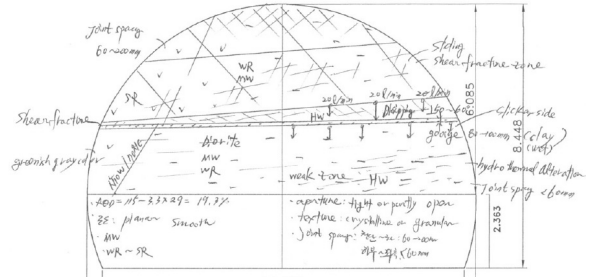 Joint spacing
60~200mm
sliding
shear fracture zone
WR
MW
SR
20 l/min
20 l/min
20 l/min
Dripping
150~60
6.085
8.448
Shear fracture
HW
side
gouge 60~100mm (clay)
(wet)
greenish gray color
Diorite
MW
WR
weak zone
HW
hydrothermal alteration
Joint spacing <60mm
2.363
· RQD = 115-3.3×29 = 19.3%
· planar smooth
· MW
· WR ~ SR
· aperture: tight or partly open
· texture: crystalline or granular
· Joint spacing: 60~200mm
<60mm